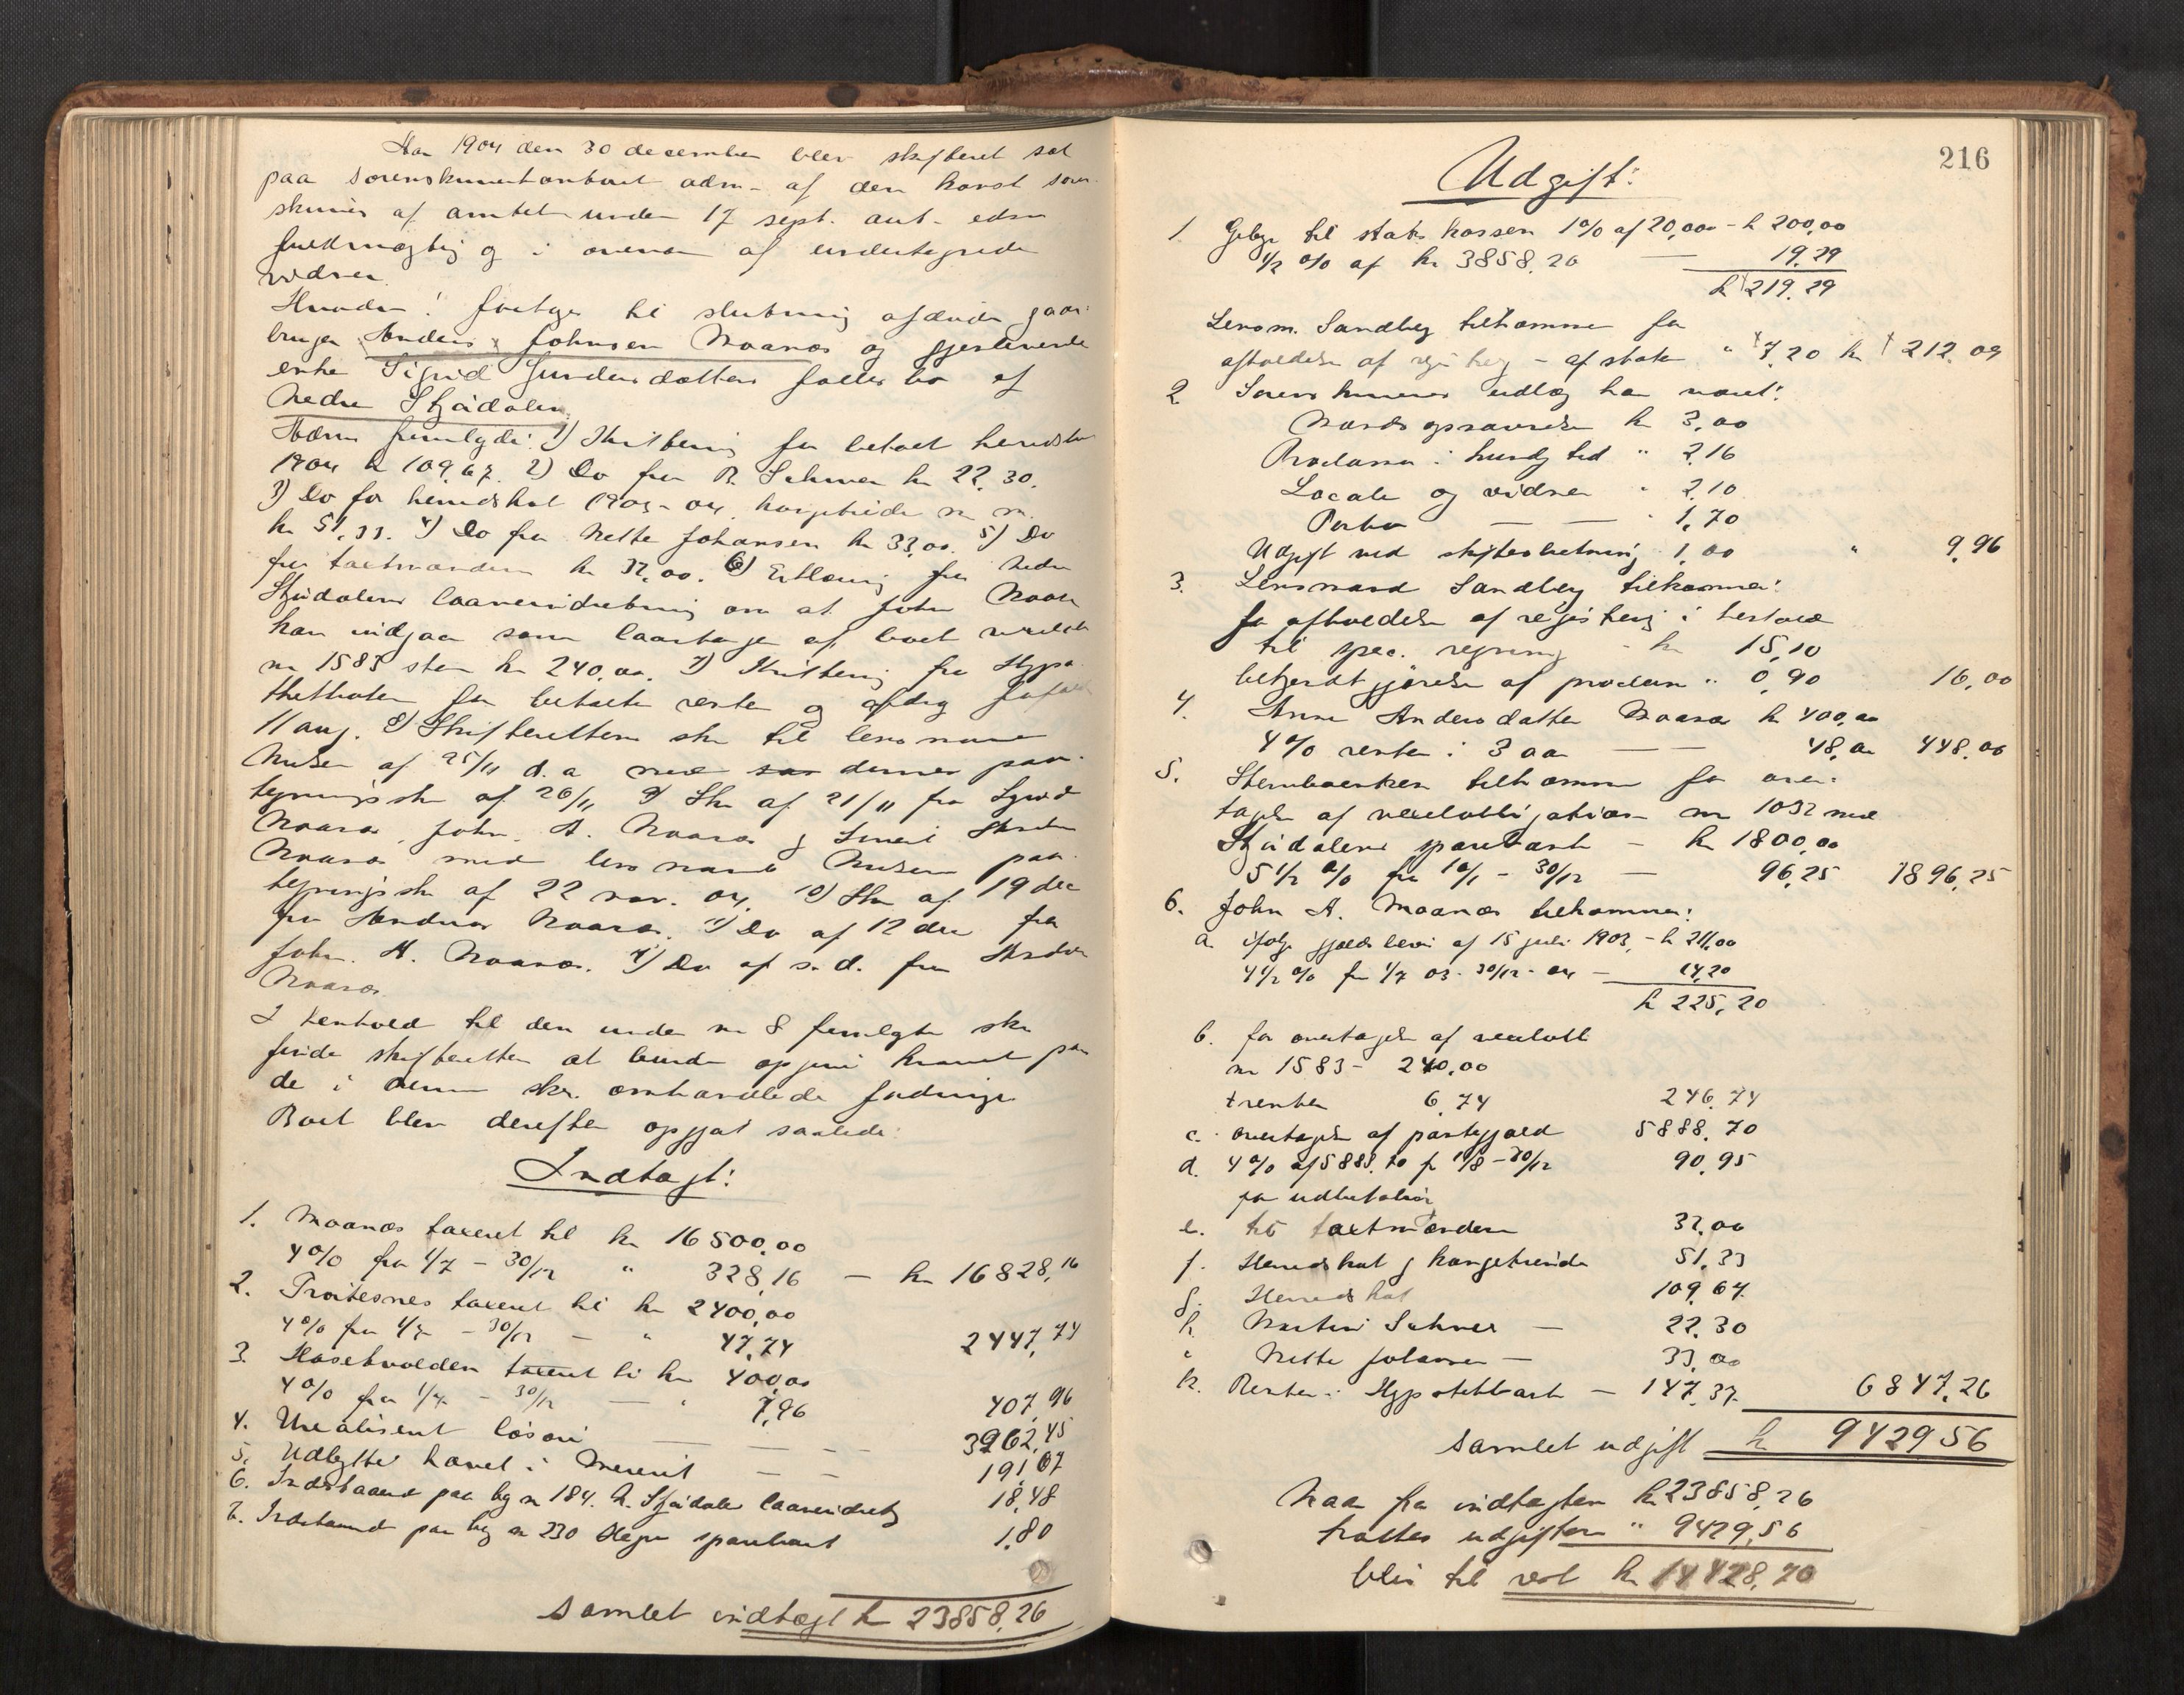 Aar 1904 den 30 december blev skifteret sat
paa sorenskriverkontoret adm. af den konst soren
skriver af amtet under 17 sept. aut. edsv
fuldmægtig og i overvær af undertegnede
vidner.
Hvorda! foretoges til slutning afdøde gaar
bruger Anders Johnsen Maanæs og gjenlevende
enke Sigrid Gundersdatters fælles bo af
Nedre Stjørdalen.
Adm fremlagde: 1) Kvittering for betalt herredsskat
1904 kr 109,67. 2) Do fra R. Schive kr 22,30.
3) Do for herredskat 1903-04, korgetiende m. m.
kr 51,33. 4) Do fra Nette Johansen kr 33,00. 5) Do
fra taxtmændene kr 32,00. 6) Erklæring fra Nedre
Stjørdalens laaneindretning om at John Maanæs
kan indgaa som laantager af boet vexelobl
nr 1583 stor kr 240,00. 7) Kvittering fra Hypo
thekbanken for betalte renter og afdrag forfaldt
11 aug. 8) Skifterettens skr til lensmand
af 25/11 d. a med dennes paa
tegningsskr af 26/11 9) Skr af 21/11 fra Sigrid
Maanæs, John A. Maanæs og
Maanæs med lensmand paa
tegningsskr af 22 nov. 04. 10) Skr af 19 dec
fra Andreas Maanæs. 11) Do af 12 dec fra
John. A. Maanæs. 4) Do af s. d. fra
Maanæs.
I henhold til den under nr 8 fremlagte skr
fandt skifteretten at burde opgive kravet paa
de i denne skr. omhandlede fordringer
Boet blev derefter opgjort saaledes:
Indtægt:
1. Maanæs taxeret til kr 16500,00
4% fra 1/7 - 30/12 " 328,16 — kr 16828,16
2. Proitesnes taxeret til kr 2400,00
4% fra 1/7 - 30/12 — " 47,74 2447,74
3. taxeret til kr 400,00
4% fra 1/7 - 30/12 — " 7,96 407,96
4. Urealiseret løsøre — — — 3962,45
5. Udbytte havet i Meieriet — — 191,67
6. Indestaaende paa bog nr 184. N. Stjørdalens laaneindretn 18,48
7. Indestaaende paa bog nr 230 Hegre sparebank 1,80
Samlet indtægt kr 23858,26
216
Udgift:
1. Gebyr til statskassen 1% af 20,000 - kr 200,00
1/2 % af kr 3858,26 — 19,29
kr 219,29
Lensm. Sandberg tilkommer for
afholdelse af reg - af staten " 7,20 kr 212,09
2. Sorenskriverens udlæg har været:
3,00
Proclama i kundg tid " 2,16
Locale og vidner " 2,10
Porto — — " 1,70
Udgift ved skifteslutning 1,00 " 9,96
3. Lensmand Sandberg tilkommer:
for afholdelse af registrering i henhold
til spec. regning - kr 15,10
bekjendtgjørelse af proclam " 0,90 16,00
4. Anne Andersdatter Maanæs kr 400,00
4% renter i 3 aar — — 48,00 448,00
5. tilkommer for over-
tagelse af vexelobligation nr 1032 med
Stjørdalens sparebank — kr 1800,00
5 1/2 % fra 10/1 - 30/12 — 96,25 1896,25
6. John A. Maanæs tilkommer:
a. ifølge gjældsbevis af 15 juli 1903, - kr 211,00
4 1/2 % fra 1/7 03 - 30/12 - 04 — 14,20
kr 225,20
b. for overtagelse af vexelobl
nr 1583 - 240,00
+ renter 6,74 246,74
c. overtagelse af pantegjæld 5888,70
d. 4% af 5888.70 fr 11/8 - 30/12 90,95
for udbetalinger
e. til taxtmændene 32,00
f. Herredskat og korgetiende 51,33
g. Herredskat 109,67
h. Schive — 22,30
i Nette Johansen — 33,00
k. Renter i Hypothekbank — 147,37 6847,26
samlet udgift kr 9429 56
Naar fra indtægten kr 23858,26
trækkes udgiften " 9429,56
blir til rest kr 14428,70